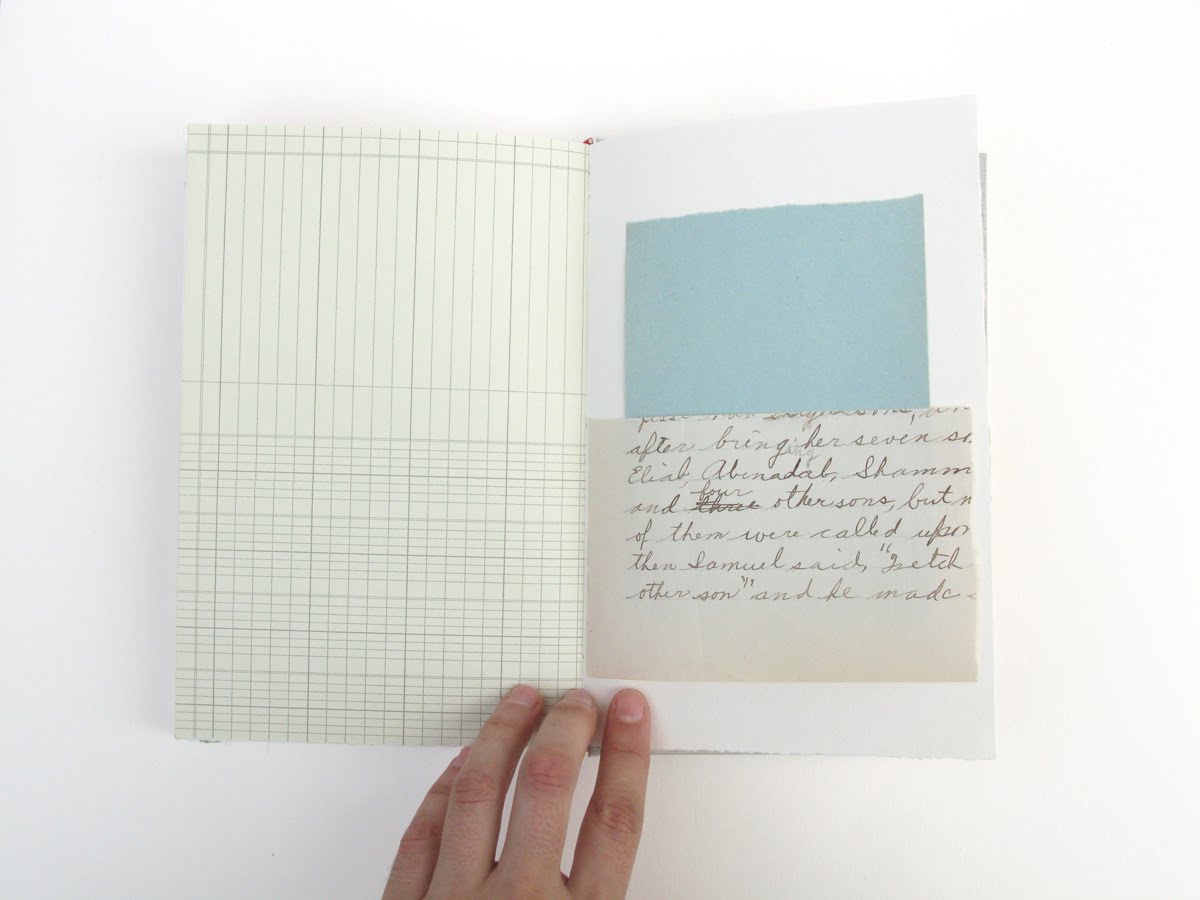 after bringing her seven so
Eliab, Abinadab, Shamm
and four three other sons, but n
of them were called upon
then Samuel said, "Fetch
other son" and he made